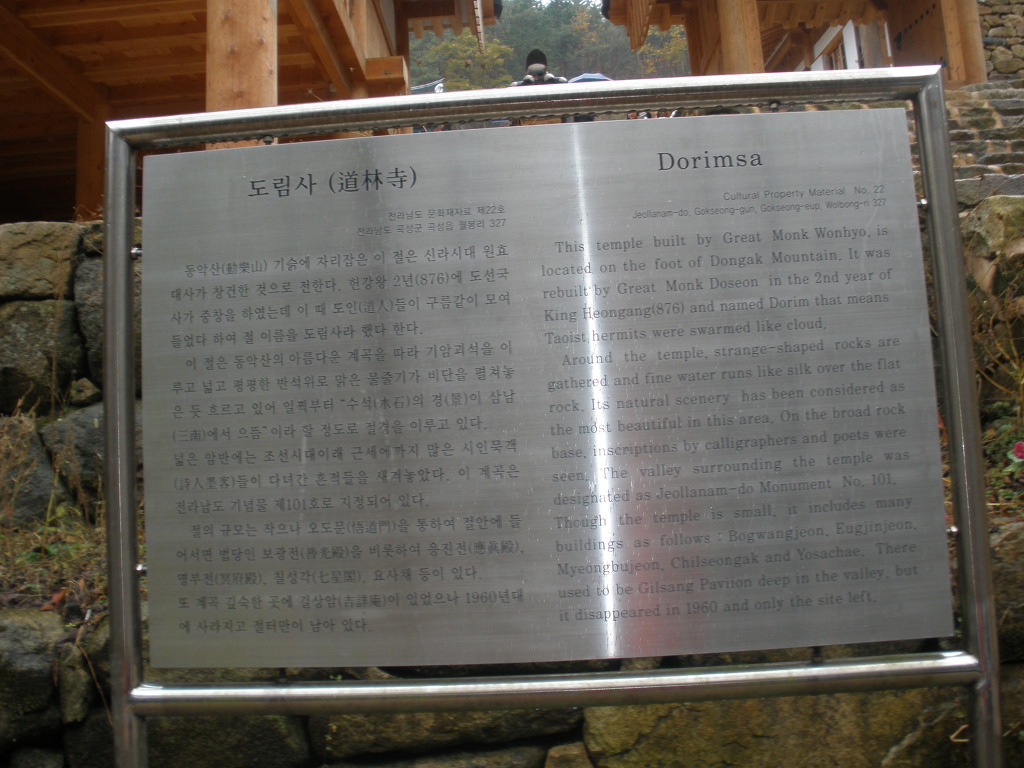 도림사 (道林寺)
전라남도 문화재자료 제22호
전라남도 곡성군 곡성읍 월봉리 327
동악산(動樂山) 기슭에 자리잡은 이 절은 신라시대 원효
대사가 창건한 것으로 전한다. 헌강왕 2년(876)에 도선국
사가 중창을 하였는데 이 때 도인(道人)들이 구름같이 모여
들었다 하여 절 이름을 도림사라 했다 한다.
이 절은 동악산의 아름다운 계곡을 따라 기암괴석을 이
루고 넓고 평평한 반석위로 맑은 물줄기가 비단을 펼쳐놓
은 듯 흐르고 있어 일찍부터 "수석(水石)의 경(景)이 삼남
(三南)에서 으뜸"이라 할 정도로 절경을 이루고 있다.
넓은 암반에는 조선시대이래 근세에까지 많은 시인묵객
(詩人墨客)들이 다녀간 흔적들을 새겨놓았다. 이 계곡은
전라남도 기념물 제101호로 지정되어 있다.
절의 규모는 작으나 오도문(悟道門)을 통하여 절안에 들
어서면 법당인 보광전(普光殿)을 비롯하여 응진전(應眞殿),
명부전(冥府殿), 칠성각(七星閣), 요사채 등이 있다.
또 계곡 깊숙한 곳에 길상암(吉祥庵)이 있었으나 1960년대
에 사라지고 절터만이 남아 있다.
Dorimsa
Cultural Property Material No. 22
Jeollanam-do, Gokseong-gun, Gokseong-eup, Wolbong-ri 327
This temple built by Great Monk Wonhyo, is
located on the foot of Dongak Mountain. It was
rebuilt by Great Monk Doseon in the 2nd year of
King Heongang(876) and named Dorim that means
Taoist hermits were swarmed like cloud.
Around the temple, strange-shaped rocks are
gathered and fine water runs like silk over the flat
rock. Its natural scenery has been considered as
the most beautiful in this area. On the broad rock
base, inscriptions by calligraphers and poets were
seen. The valley surrounding the temple was
designated as Jeollanam-do Monument No. 101.
Though the temple is small, it includes many
buildings as follows : Bogwangjeon, Eugjinjeon,
Myeongbujeon, Chilseongak and Yosachae. There
used to be Gilsang Pavilion deep in the valley, but
it disappeared in 1960 and only the site left.